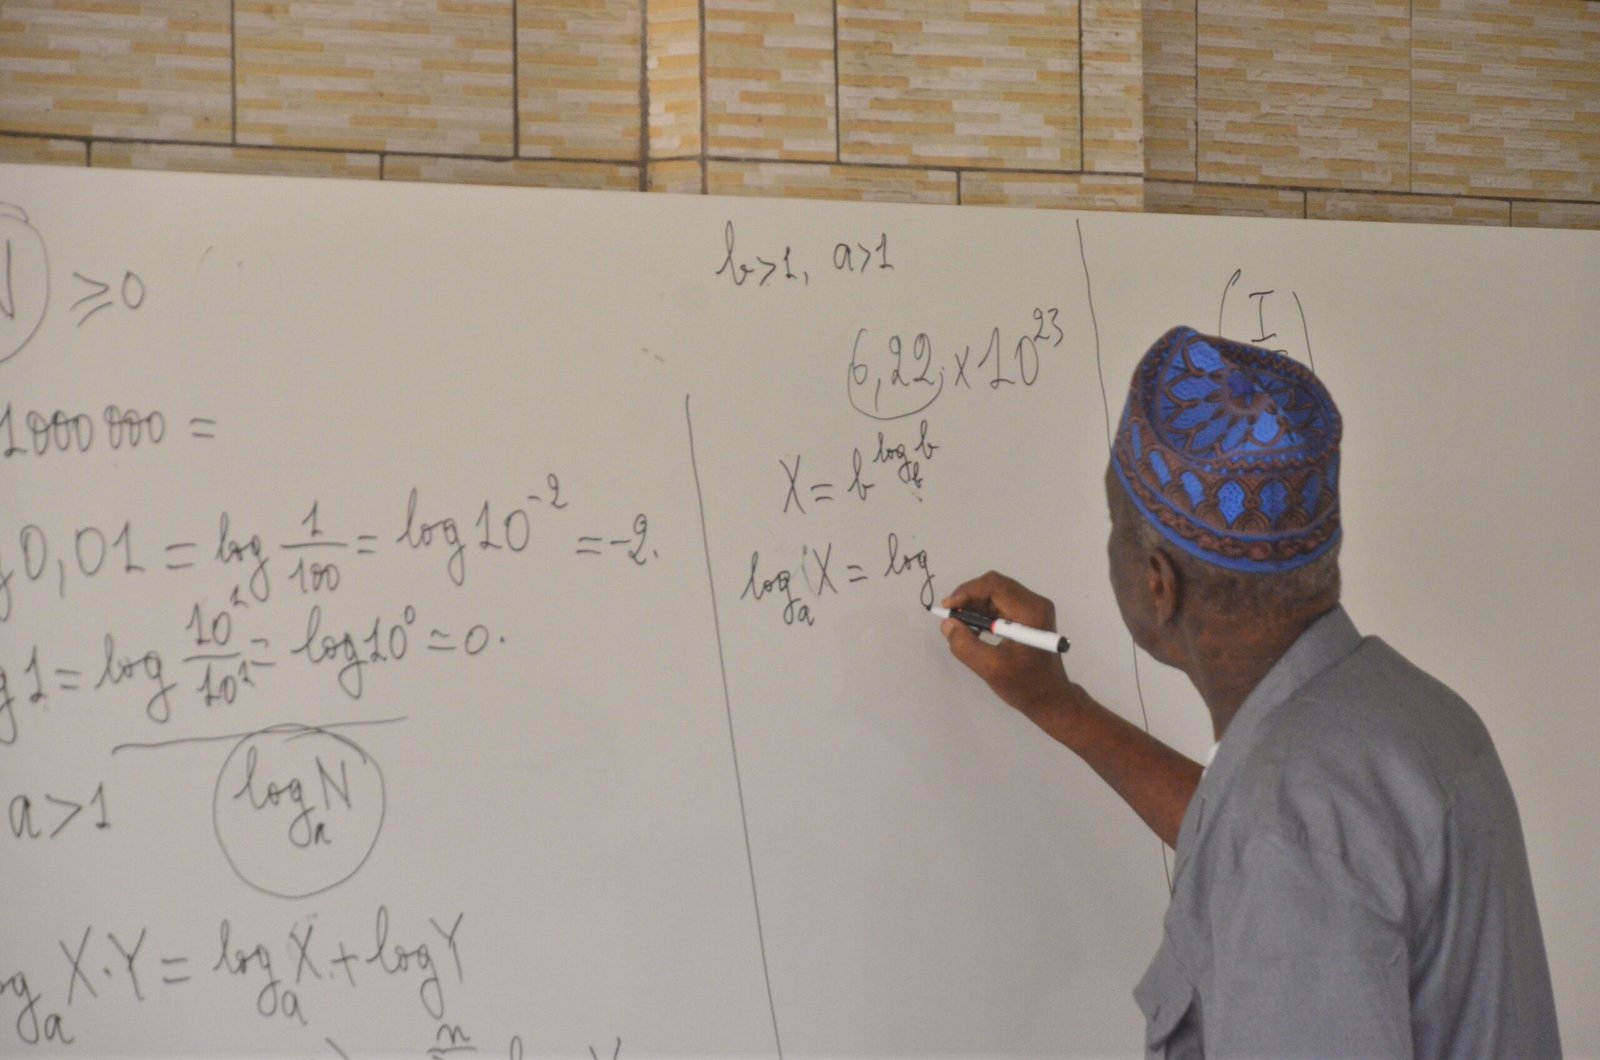 N ≥ 0
1000 000 =
g 0,01 = log 1/100 = log 10⁻² = -2.
g 1 = log 10¹/10¹ = log 10⁰ = 0.
a > 1
logₐ N
logₐ X·Y = logₐ X + log Y
n
b > 1, a > 1
6,22 × 10²³
X = b^(log_b b)
logₐ X = log
(I)